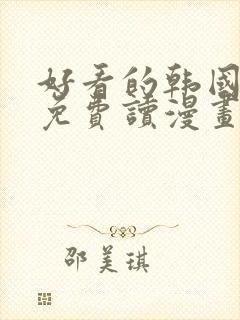 好看的韩國
免費讀漫畫
邵美琪